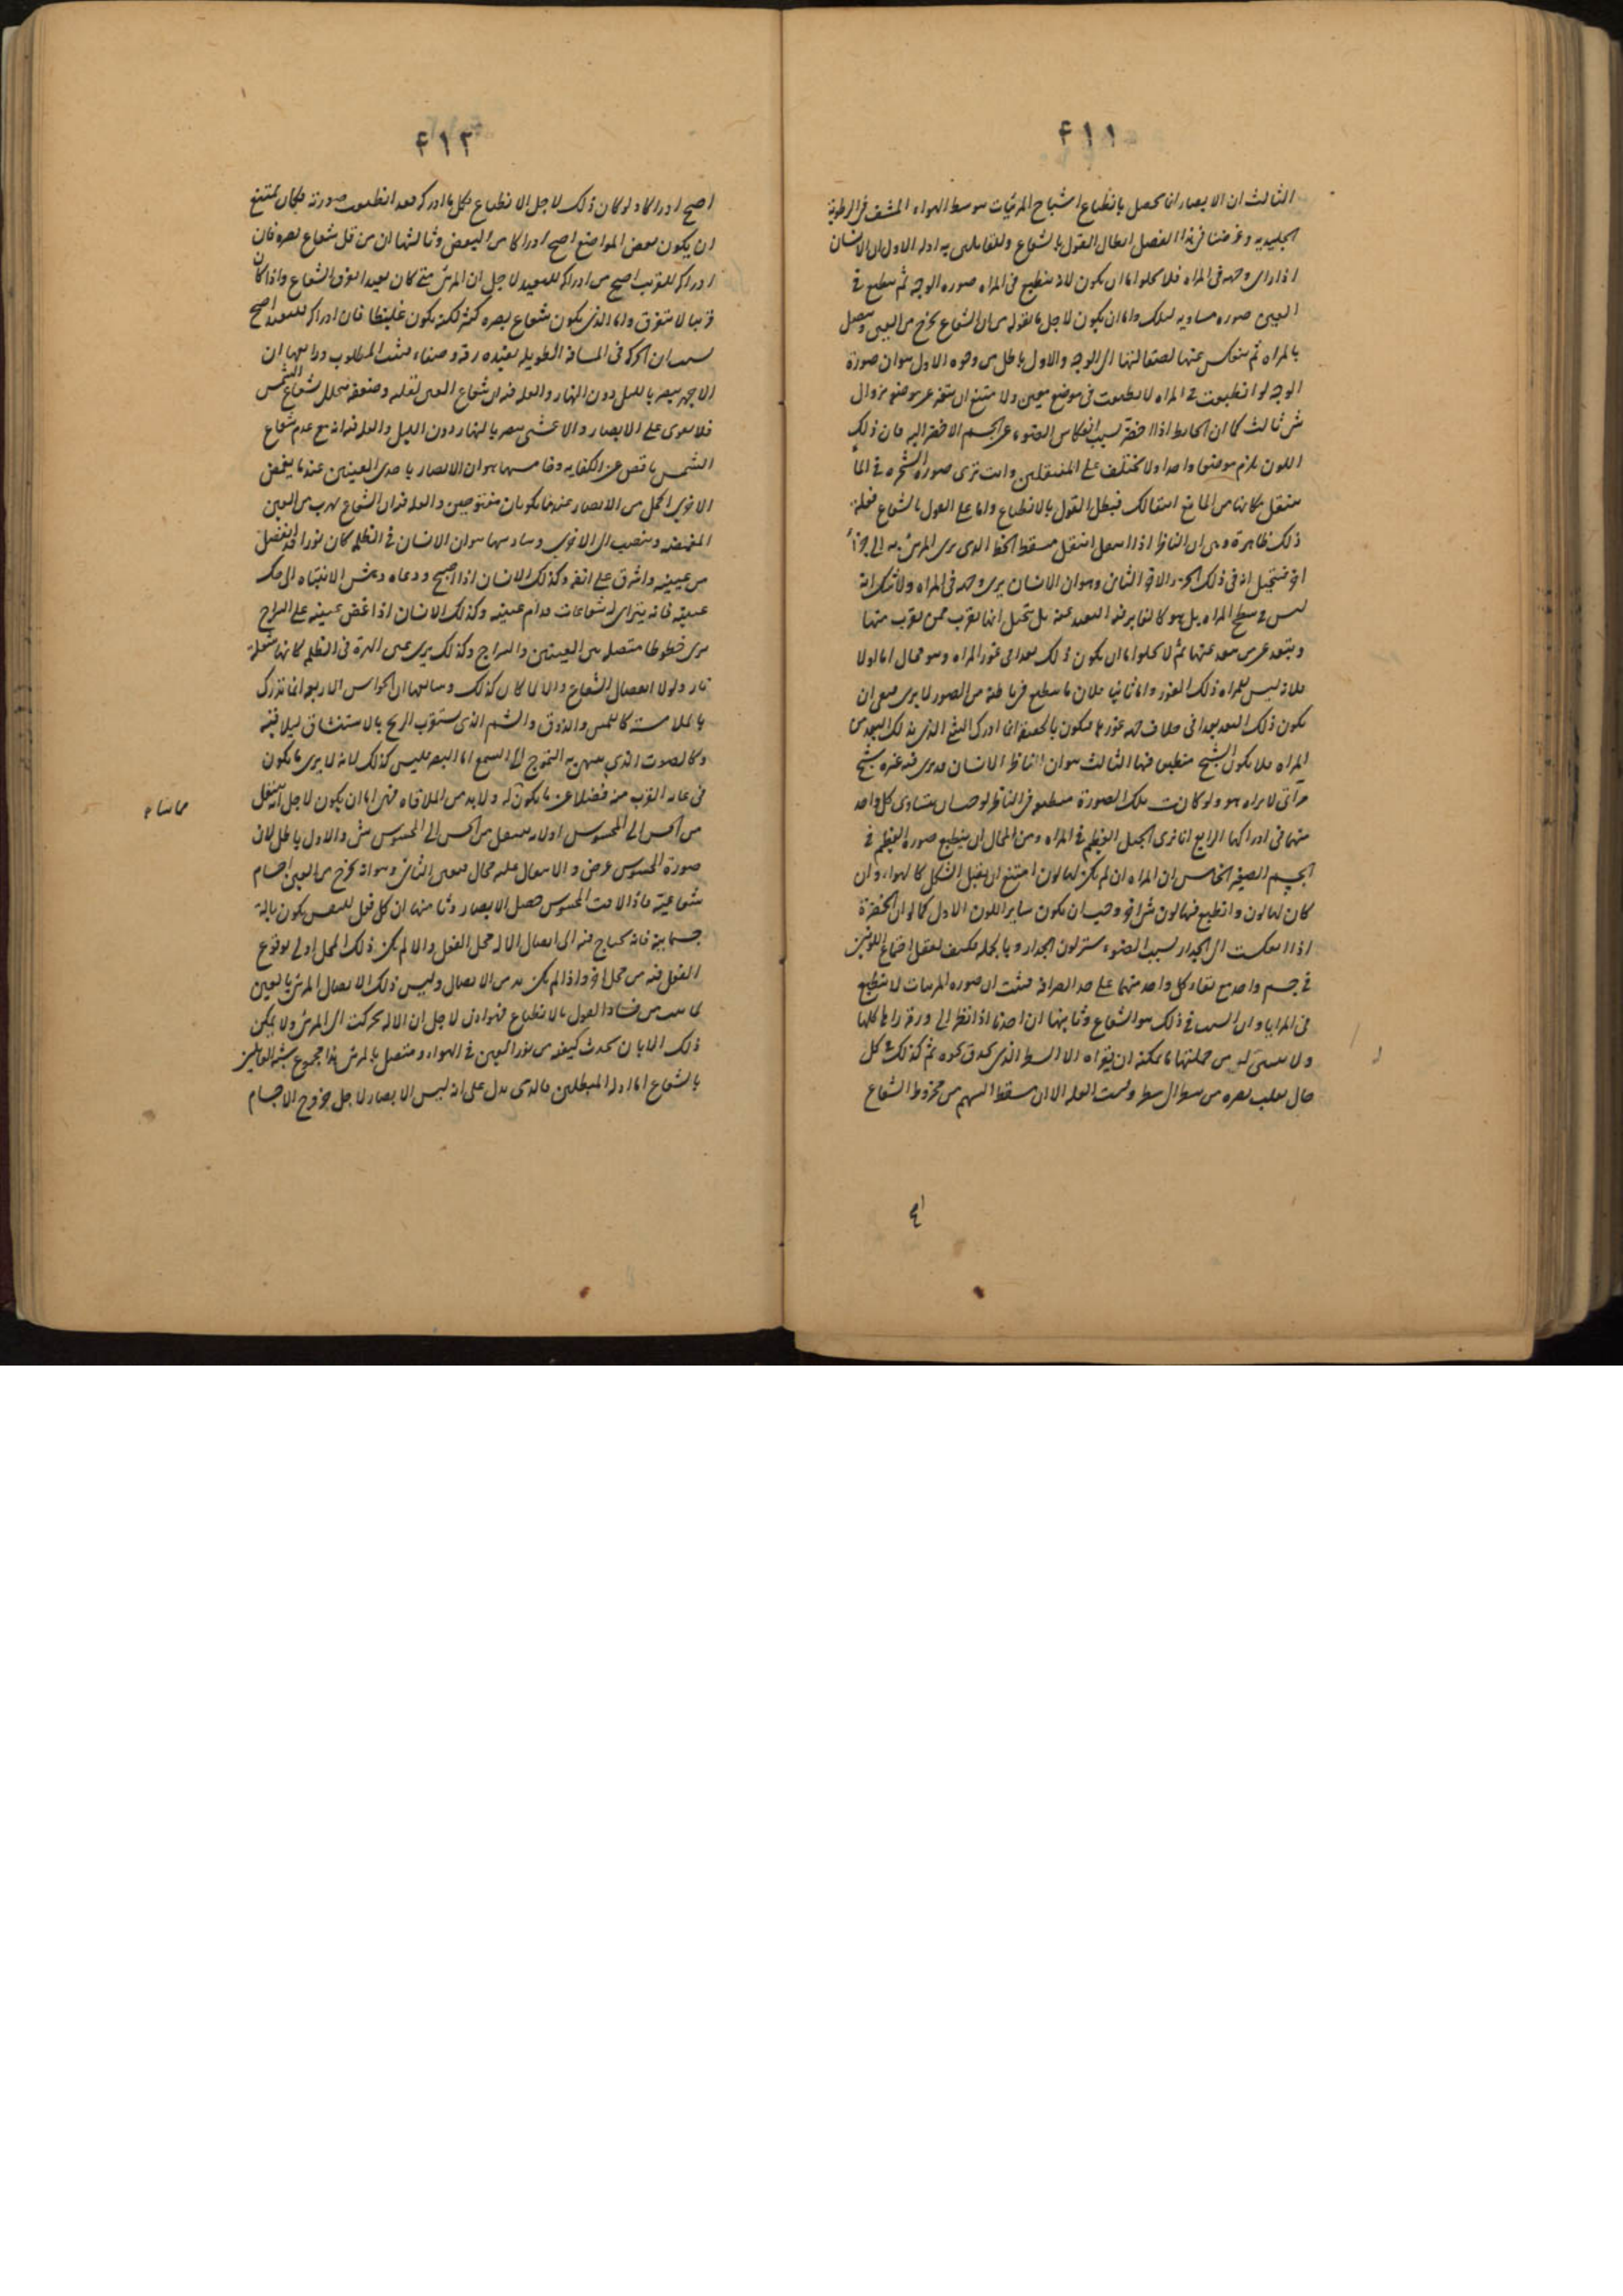 ٤١١
الثالث ان الابصار انما يحصل بانطباع اشباح المرئيات بتوسط الهواء المشف فى الرطوبة
الجليدية وغرضنا فى هذا الفصل ابطال القول بالشعاع وللقائلين به ادلة الاول ان الانسان
اذا راى وجهه فى المراه فلا يخلو اما ان يكون لانه ينطبع فى المراه صوره الوجه ثم ينطبع فى
العين صوره مساويه لتلك واما ان يكون لاجل ما نقوله من ان الشعاع يخرج من العين ويتصل
بالمراه ثم ينعكس عنها لصقالتها الى الوجه والاول باطل من وجوه الاول هو ان صورة
الوجه لو انطبعت فى المراه لانطبعت فى موضع معين ولامتنع ان يتغير عن موضعه بزوال
شئ ثالث كما ان الحايط اذا اخضر بسبب انعكاس الضوء عن الجسم الاخضر اليه فان ذلك
اللون يلزم موضعا واحدا ولا يختلف على المنتقلين وانت ترى صورة الشجره فى الماء
ينتقل مكانها من الماء مع انتقالك فبطل القول بالانطباع واما على القول بالشعاع فعلة
ذلك ظاهرة وهى ان الناظر اذا انتقل انتقل مسقط الخط الذى يرى المرئى به الى جزء
اخر فتخيل انه فى ذلك الجزء الاخر الثانى وهو ان الانسان يرى وجهه فى المراه ولا شك انه
ليس فى سطح المراه بل هو كالغاير فيه البعيد عنه بل يتخيل انها يقرب ممن يقرب منها
ويبتعد عمن يبتعد عنها ثم لا يخلو اما ان يكون ذلك بعدا فى غور المراه وهو محال اما اولا
فلانه ليس للمراه ذلك الغور واما ثانيا فلان ما ينطبع فى باطنه من الصور لا يرى فبقى ان
يكون ذلك البعد بعدا فى خلاف جهه غوره فيكون بالحقيقة انما ادرك الشئ الذى بذلك البعد من
المراه فلا يكون الشبح منطبعا فيها الثالث هو ان الناظر الانسان قد يرى فيه غيره شبح
مرآتى لا يراه هو ولو كانت تلك الصورة منطبعه فى الناظر لوجب ان يتساوى كل واحد
منهما فى ادراكها الرابع انا نرى الجبل العظيم فى المراه ومن المحال ان ينطبع صورة العظيم فى
الجسم الصغير الخامس ان المراه ان لم يكن لها لون امتنع ان يقبل الشكل كالهواء وان
كان لها لون وانطبع فيها لون شئ اخر وجب ان يكون ساير اللون الاول كما لو ان الخضرة
اذا انعكست الى الجدار بسبب الضوء ستر لون الجدار وبالجمله فكيف يعقل اجتماع اللونين
فى جسم واحد مع بقاء كل واحد منهما على حد الصرافه فثبت ان صوره المرئيات لا تنطبع
فى المرايا وان السبب فى ذلك هو الشعاع وثانيها ان احدنا اذا نظر الى ورقه راها كلها
ولا يتبين له من جملتها ما يمكنه ان يقراه الا السطر الذى يحدق نحوه ثم كذلك فى كل
حال يقلب بصره من سطر الى سطر وليست العله الا ان مسقط السهم من مخروط الشعاع
٤١٢
اصح ادراكا ولو كان ذلك لاجل الانطباع فكل ما ادركه فقد انطبعت صورته فكان يمتنع
ان يكون بعض المواضع اصح ادراكا من البعض وثالثها ان من قل شعاع بصره فان
ادراكه للقريب اصح من ادراكه للبعيد لاجل ان المرئى متى كان بعيدا تفرق الشعاع واذا كان
قريبا لا يتفرق واما الذى يكون شعاع بصره كثيرا لكنه يكون غليظا فان ادراكه للبعيد اصح
بسبب ان الحركة فى المسافة الطويله يفيده رقه وصفاء فثبت المطلوب ورابعها ان
الاجهر يبصر بالليل دون النهار والعله فيه ان شعاع العين لقلته وضعفه يتحلل بشعاع الشمس
فلا يقوى على الابصار والاعشى يبصر بالنهار دون الليل والعله فيه انه مع عدم شعاع
الشمس ناقص عن الكفايه وخامسها هو ان الابصار باحدى العينين عند ما يغمض
الاخرى اكمل من الابصار عند ما يكونان مفتوحين والعله فيه ان الشعاع يهرب من العين
المغمضه وينصب الى الاخرى وسادسها هو ان الانسان فى الظلمه كان نورا قد انفصل
من عينيه واشرق على انفه وكذلك الانسان اذا اصبح ودعاه دهش الانتباه الى حك
عينيه فانه يتراى له شعاعات قدام عينيه وكذلك الانسان اذا غمض عينيه على السراج
يرى خطوطا متصله بين العينين والسراج وكذلك يرى عين الهرة فى الظلمه كانها شعلة
نار ولولا انفصال الشعاع والا لما كان كذلك وسابعها ان الحواس الاربع انما تدرك
بالملامسة كاللمس والذوق والشم الذى يستقرب الريح بالاستنشاق ليلاقيه
وكالصوت الذى ينتهى به التموج الى السمع اما البصر فليس كذلك لانه لا يرى ما يكون
فى غايه القرب منه فضلا عن ما يكون له ولا بد من الملاقاه فهى اما ان يكون لاجل انه ينتقل
مماسا له
من الحس الى المحسوس اولانه ينتقل من الحس الى المحسوس شئ والاول باطل لان
صورة المحسوس عرض والانتقال عليه محال فبقى الثانى وهو انه يخرج من العين اجسام
شعاعية فاذا لاقت المحسوس حصل الابصار وثامنها ان كل فعل للنفس يكون بالة
جسمانية فانه يحتاج فيه الى اتصال الالة بمحل الفعل والا لم يكن ذلك المحل اولى بوقوع
الفعل فيه من محل اخر واذا لم يكن بد من الاتصال وليس ذلك الاتصال المرئى بالعين
لما ثبت من فساد القول بالانطباع فهو اذن لاجل ان الالة تحركت الى المرئى ولا يمكن
ذلك الا بان يحدث كيفيه من نور العين فى الهواء ومتصل بالمرئى هذا مجموع شبه القائلين
بالشعاع اما ادلة المبطلين فالذى يدل على انه ليس الابصار لاجل خروج الاجسام